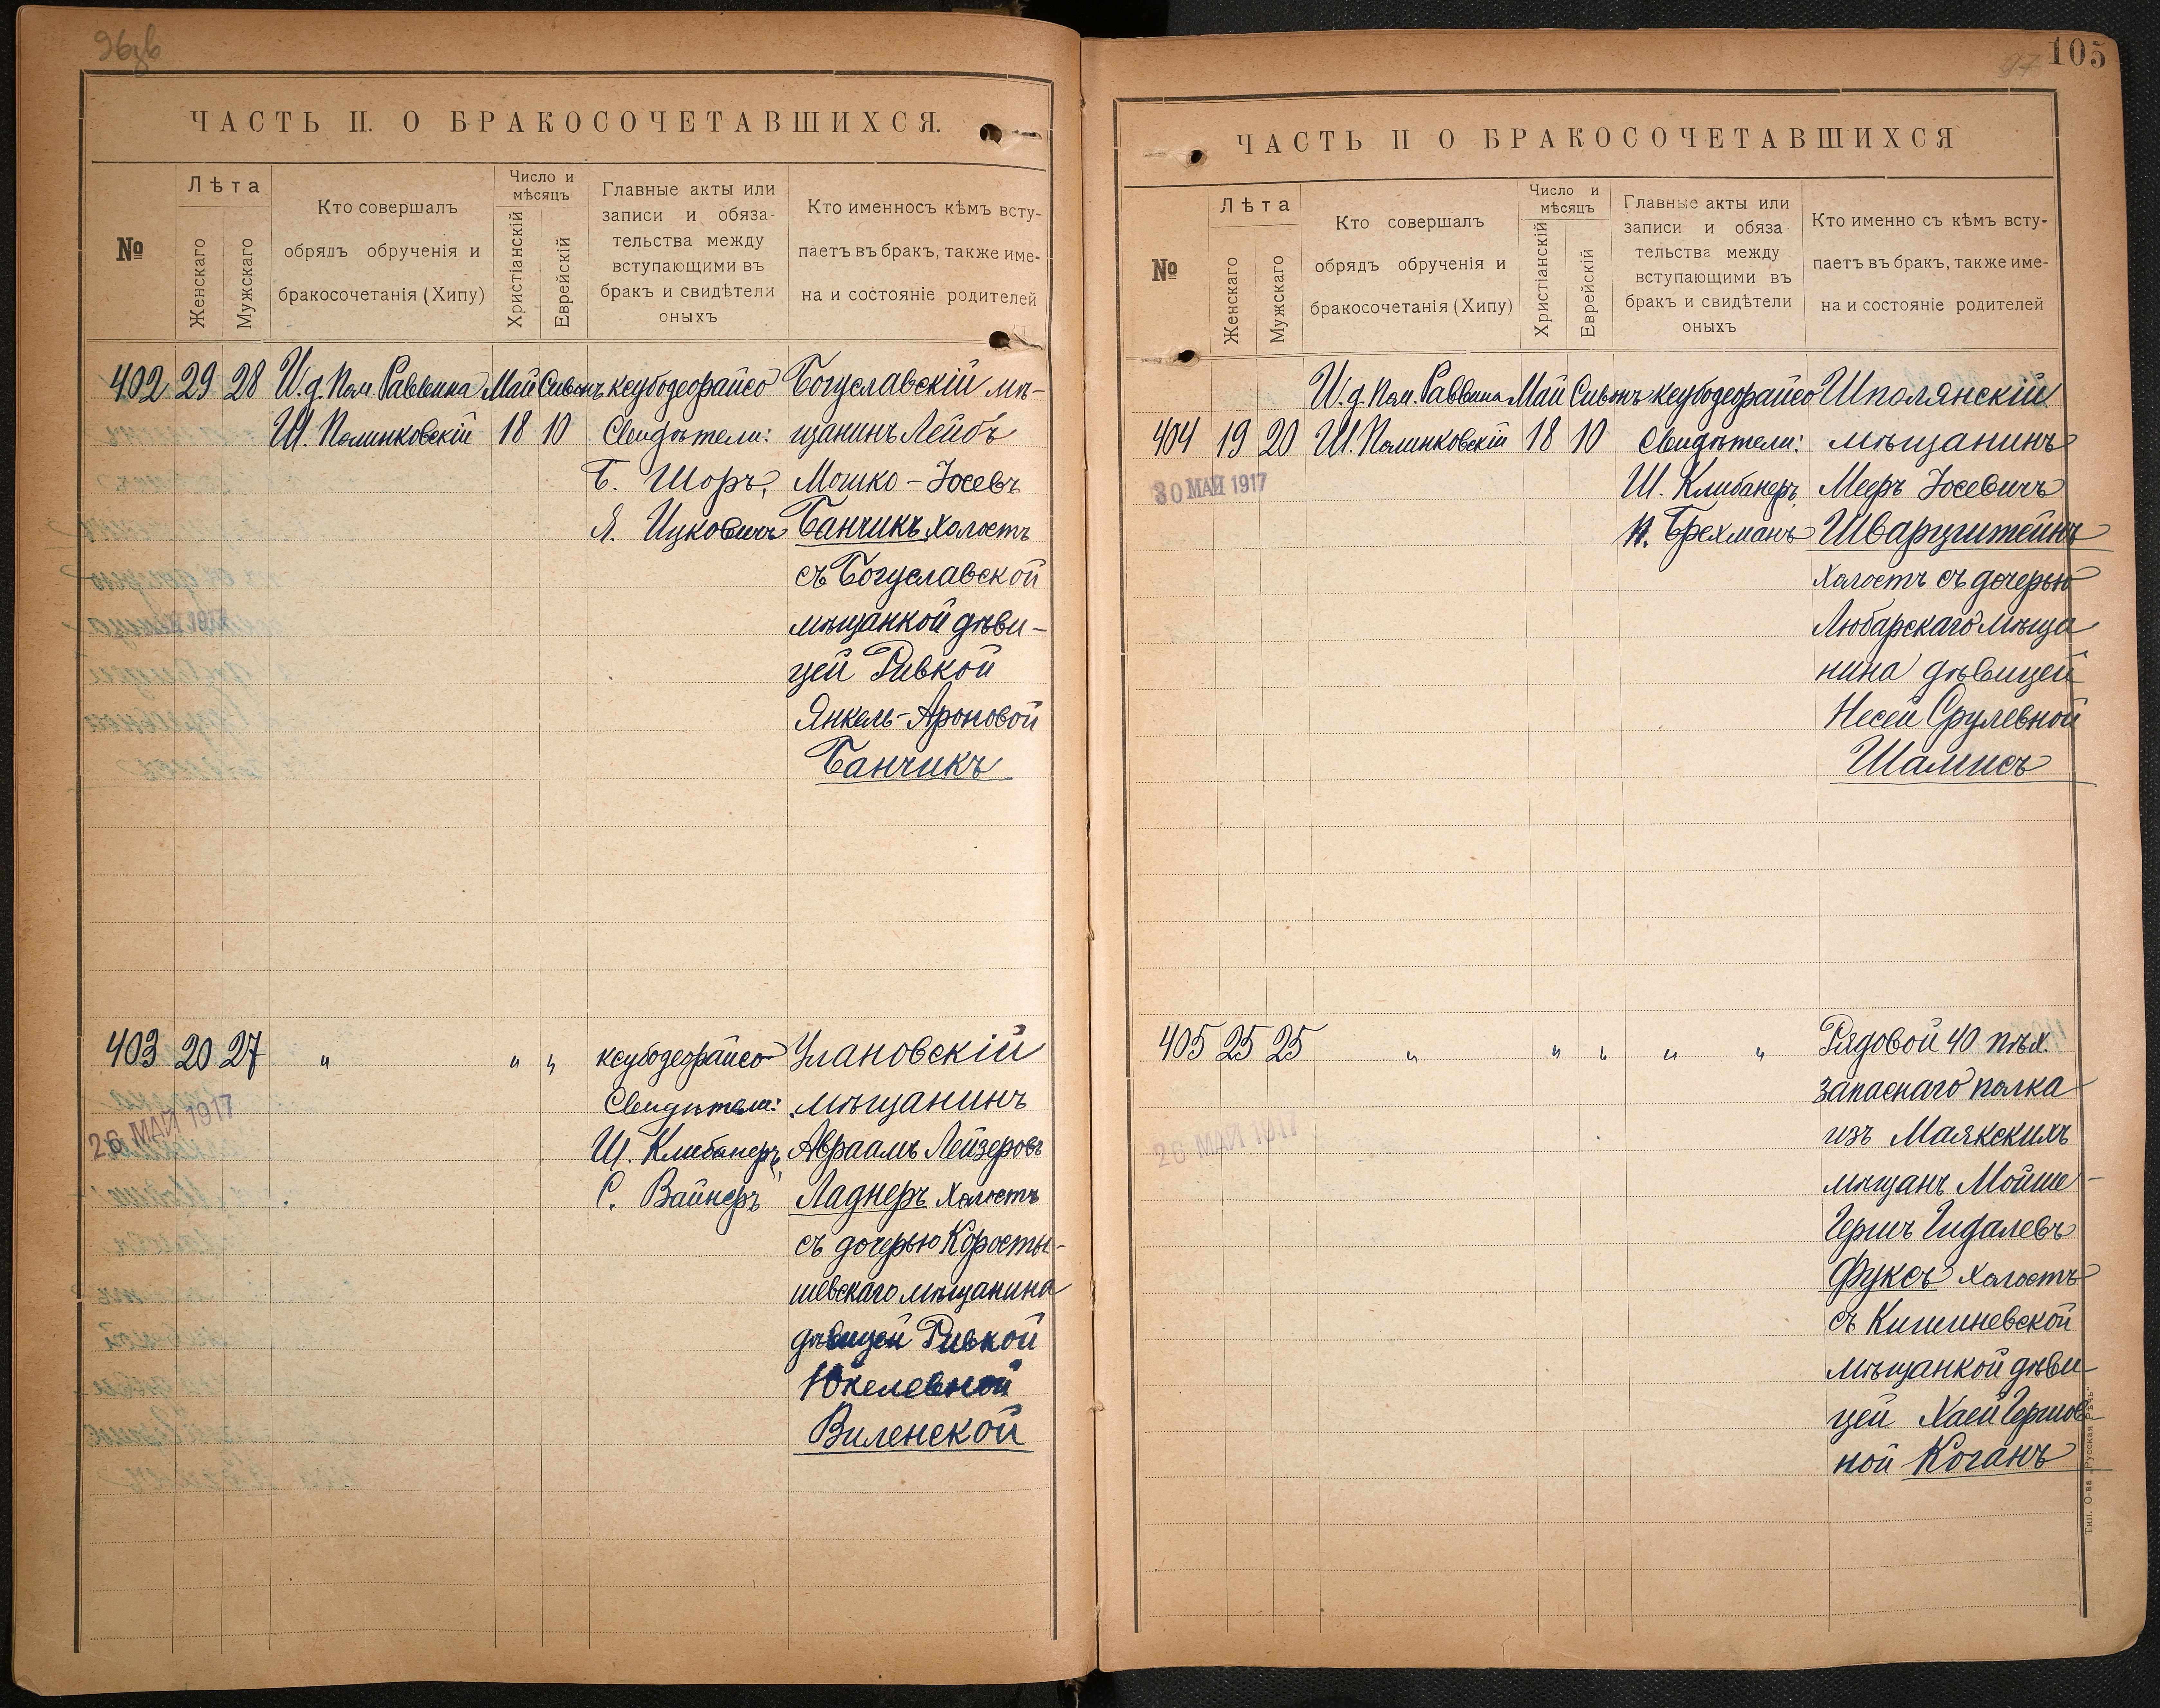 96об
ЧАСТЬ II. О БРАКОСОЧЕТАВШИХСЯ.
№
Лѣта
Женскаго
Мужскаго
Кто совершалъ
обрядъ обрученія и
бракосочетанія (Хипу)
Число и
мѣсяцъ
Христіанскій
Еврейскій
Главные акты или
записи и обяза-
тельства между
вступающими въ
бракъ и свидѣтели
оныхъ
Кто именносъ кѣмъ всту-
паетъ въ бракъ, также име-
на и состояніе родителей
402 29 28 И. д. Пом. Раввина Май Сивонъ ксубодеорайсо Богуславскій мѣ-
Ш. Полинковскій 18 10 Свидѣтели: щанинъ Лейбъ
Б. Шоръ, Мошко-Іосевъ
Я. Ицковичъ Банчикъ холостъ
съ Богуславской
мѣщанкой дѣви-
цей Ривкой
Янкель-Ароновой
Банчикъ
403 20 27 " " " ксубодеорайсо Улановскій
26 МАЙ 1917
Свидѣтели: мѣщанинъ
Ш. Клибанеръ, Авраамъ Лейзеровъ
С. Вайнеръ Ладнеръ холостъ
съ дочерью Коросты-
шевскаго мѣщанина
дѣвицей Ривкой
Юкелевной
Виленской
97 105
ЧАСТЬ II О БРАКОСОЧЕТАВШИХСЯ
№
Лѣта
Женскаго
Мужскаго
Кто совершалъ
обрядъ обрученія и
бракосочетанія (Хипу)
Число и
мѣсяцъ
Христіанскій
Еврейскій
Главные акты или
записи и обяза
тельства между
вступающими въ
бракъ и свидѣтели
оныхъ
Кто именно съ кѣмъ всту-
паетъ въ бракъ, также име-
на и состояніе родителей
И. д. Пом. Раввина Май Сивонъ ксубодеорайсо Шполянскій
404 19 20 Ш. Полинковскій 18 10 Свидѣтели: мѣщанинъ
30 МАЙ 1917
Ш. Клибанеръ, Мееръ Іосевичъ
Н. Брехманъ Шварцштейнъ
холостъ съ дочерью
Любарскаго мѣща
нина дѣвицей
Несей Срулевной
Шамисъ
405 25 25 " " " " " Рядовой 40 пѣх.
26 МАЙ 1917
запаснаго полка
изъ Маякскихъ
мѣщанъ Мойше-
Гершъ Гидалевъ
Фуксъ холостъ
съ Кишиневской
мѣщанкой дѣви
цей Хаей Гершов
ной Коганъ
Тип. О-ва „Русская Рѣчь"